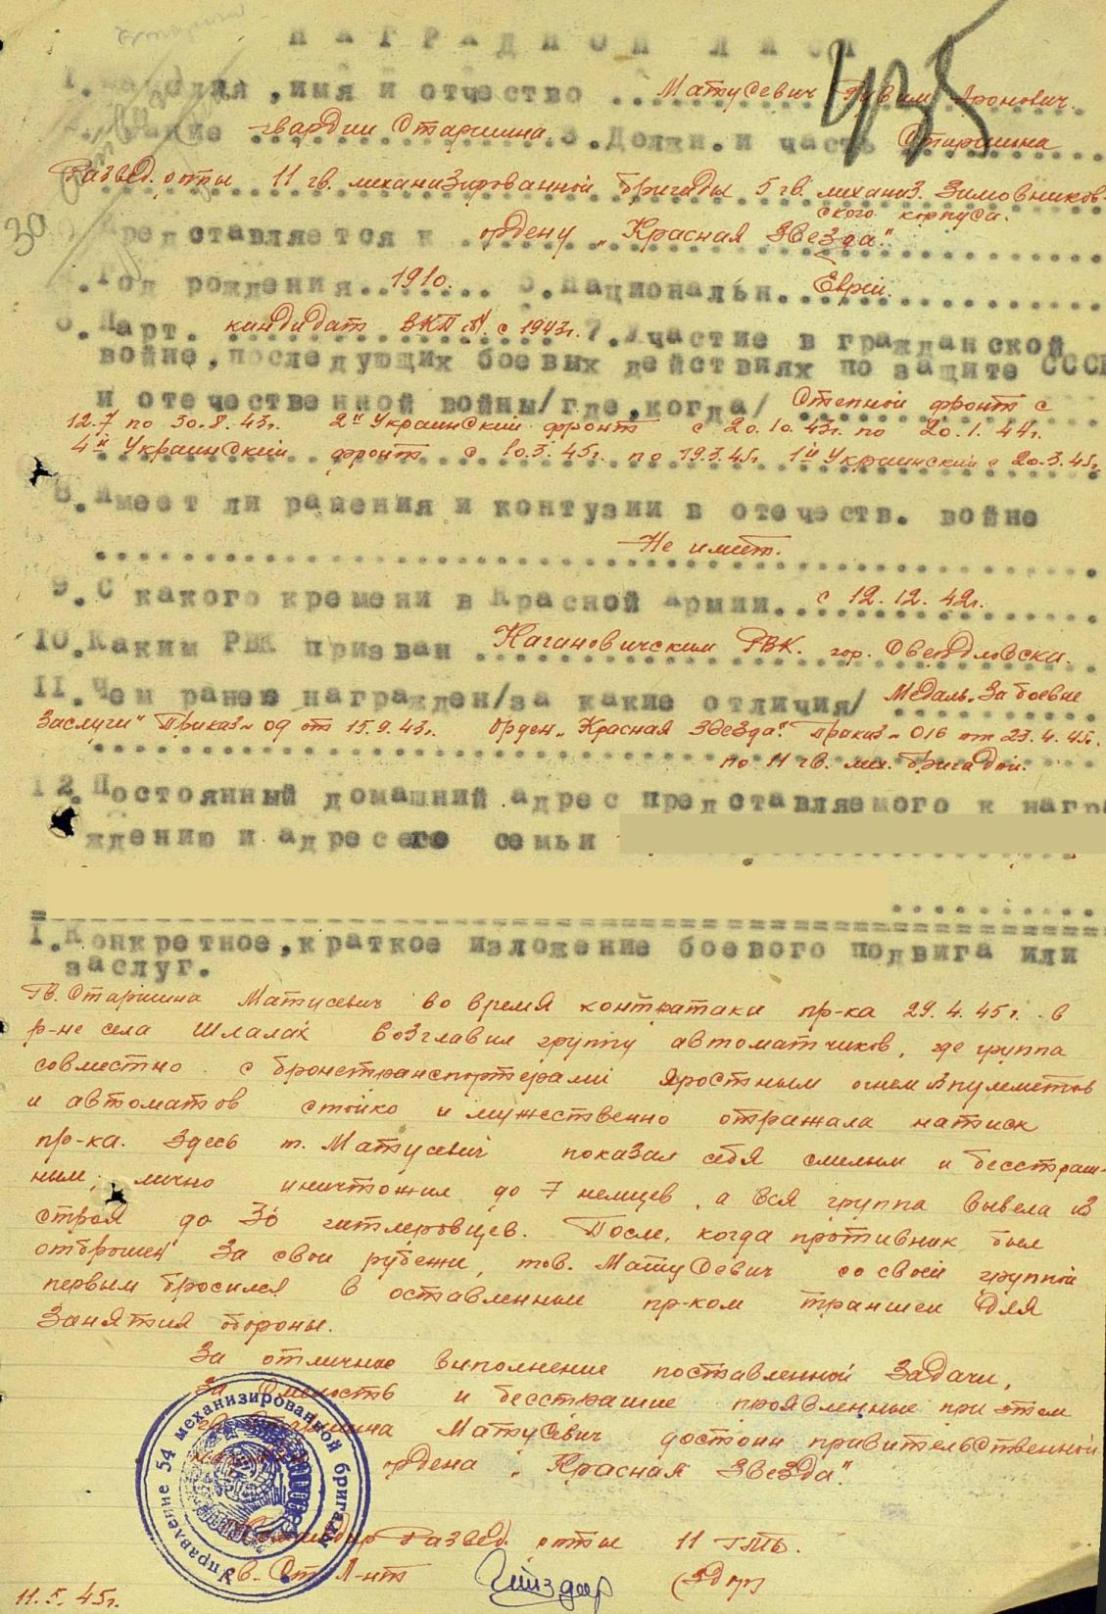 НАГРАДНОЙ ЛИСТ
435
1. Фамилия, имя и отчество Матусевич Рувим Аронович.
2. Звание гвардии Старшина 3. Должн. и часть Старшина
Развед. роты 11 гв. механизированной бригады 5 гв. механиз. Зимовников-
ского корпуса.
30
Представляется к ордену „Красная Звезда"
4. Год рождения 1910. 5. Национальн. Еврей.
6. Парт. кандидат ВКП(б) с 1943г. 7. Участие в гражданской
войне, последующих боевых действиях по защите СССР
и отечественной войны/где, когда/ Степной фронт с
12.7 по 30.8.43г. 2й Украинский фронт с 20.10.43г. по 20.1.44г.
4й Украинский фронт с 10.3.45г. по 19.3.45г. 1й Украинский с 20.3.45г.
8. Имеет ли ранения и контузии в отечеств. войне
Не имеет.
9. С какого времени в Красной Армии с 12.12.42г.
10. Каким РВК призван Кагановичским РВК. гор. Свердловска.
11. Чем ранее награжден/за какие отличия/ Медаль „За боевые
Заслуги" Приказ № 09 от 15.9.43г. Орден „Красная Звезда" Приказ № 016 от 23.4.45г.
по 11 гв. мех. бригадой.
12. Постоянный домашний адрес представляемого к награ
ждению и адрес его семьи
1. Конкретное, краткое изложение боевого подвига или
заслуг.
Гв. Старшина Матусевич во время контратаки пр-ка 29.4.45г. в
р-не села Шлалах возглавил группу автоматчиков, где группа
совместно с бронетранспортерами яростным огнем пулеметов
и автоматов стойко и мужественно отражала натиск
пр-ка. Здесь т. Матусевич показал себя смелым и бесстраш-
ным, лично уничтожил до 7 немцев, а вся группа вывела из
строя до 30 гитлеровцев. После, когда противник был
отброшен за свои рубежи, тов. Матусевич со своей группой
первым бросился в оставленные пр-ком траншеи для
занятия обороны.
За отличное выполнение поставленной задачи,
за смелость и бесстрашие проявленные при этом
гв. Старшина Матусевич достоин правительственной
ордена „Красная Звезда".
Командир Развед. роты 11 ГМБр.
гв. Ст. Л-нт
11.5.45г.
Управление 54 механизированной бригады